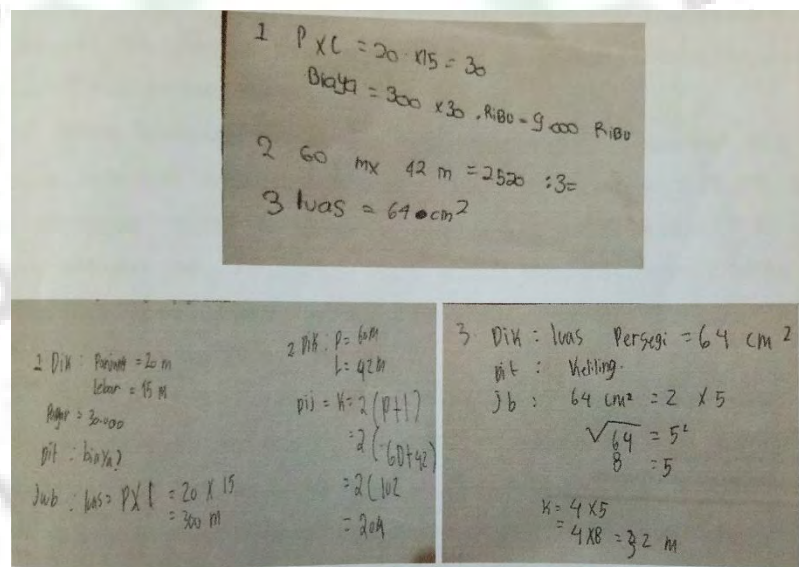 1 P X L = 20 x 15 = 30
Biaya = 300 x 30 . RiBu = 9.000 RiBu
2 60 m x 42 m = 2520 : 3 =
3 luas = 64 cm²
1 Dik : Panjang = 20 m
Lebar = 15 M
Pagar = 30.000
Dit : biaya?
Jwb : luas = P X l = 20 X 15
= 300 m
2 Dik : P = 60 m
L = 42 m
Dij = K = 2 (P+l)
= 2 (60+42)
= 2 (102
= 204
3. Dik : luas Persegi = 64 cm²
Dit : Keliling.
Jb : 64 cm² = 2 X 5
√64 = 5²
8 = 5
K = 4 X 5
= 4 X 8 = 32 m